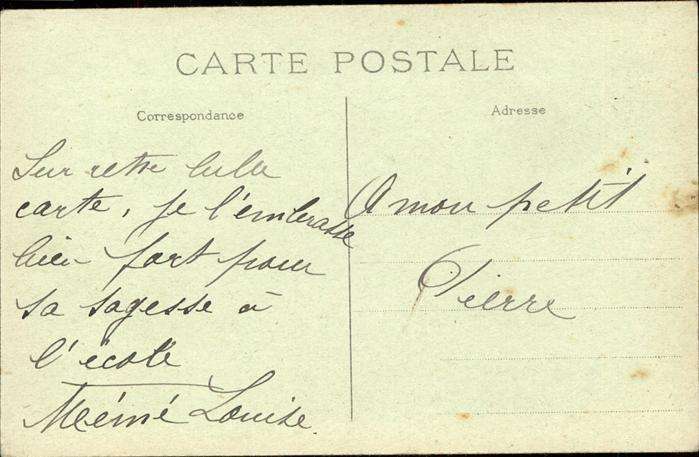 CARTE POSTALE
Correspondance
Sur cette belle
carte, je l'embrasse
bien fort pour
sa sagesse à
l'école
Mémé Louise
Adresse
A mon petit
Pierre